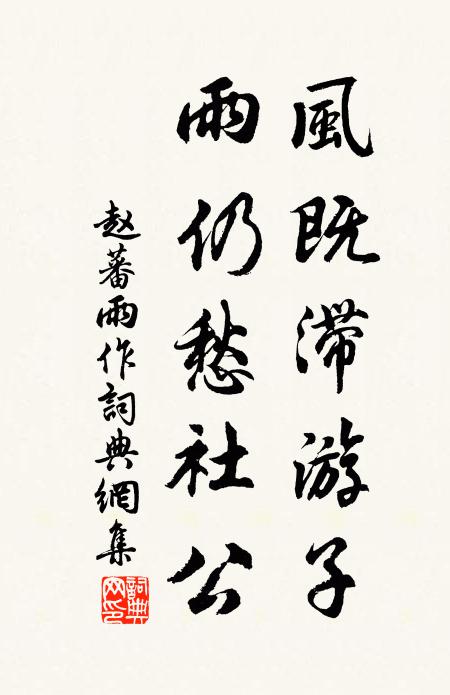 風既滞游子
雨仍愁社公
赵蕃雨作詞典網集
詞典网印